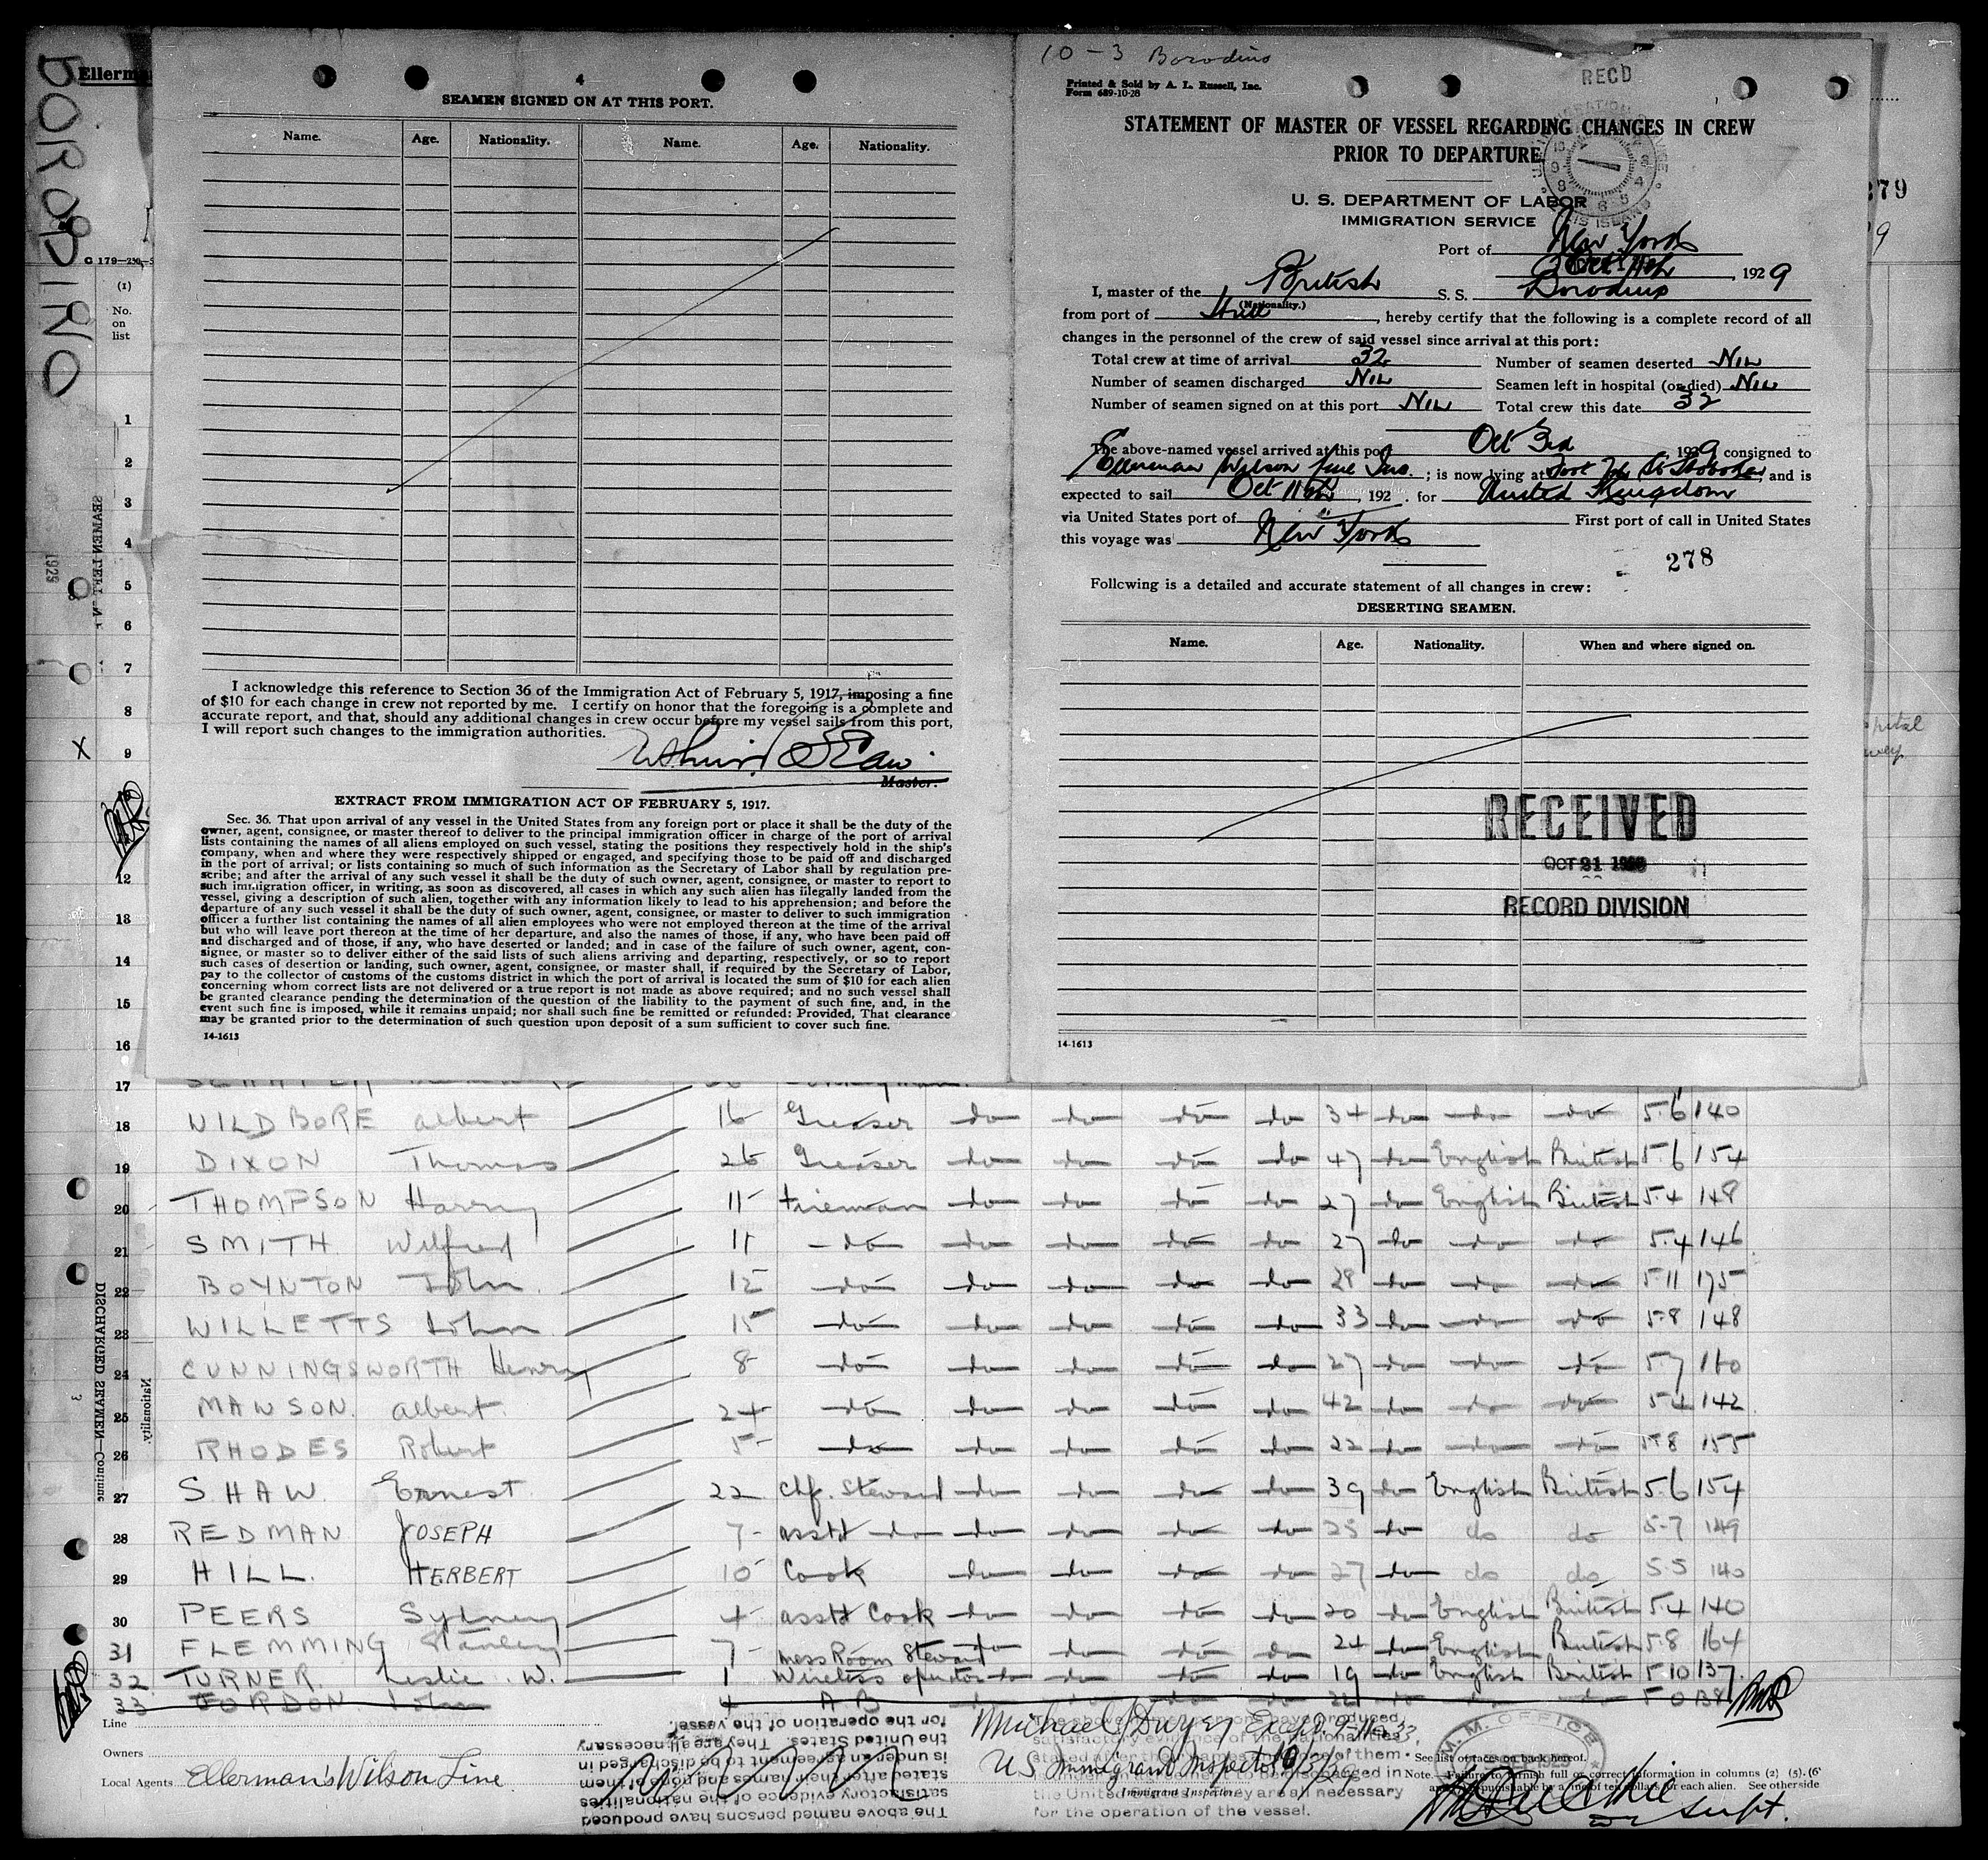 BORODINO
Ellerma
C 179
(1)
No.
on
list
4
SEAMEN SIGNED ON AT THIS PORT.
Name. Age. Nationality. Name. Age. Nationality.
I acknowledge this reference to Section 36 of the Immigration Act of February 5, 1917, imposing a fine
of $10 for each change in crew not reported by me. I certify on honor that the foregoing is a complete and
accurate report, and that, should any additional changes in crew occur before my vessel sails from this port,
I will report such changes to the immigration authorities.
Master.
EXTRACT FROM IMMIGRATION ACT OF FEBRUARY 5, 1917.
Sec. 36. That upon arrival of any vessel in the United States from any foreign port or place it shall be the duty of the
owner, agent, consignee, or master thereof to deliver to the principal immigration officer in charge of the port of arrival
lists containing the names of all aliens employed on such vessel, stating the positions they respectively hold in the ship's
company, when and where they were respectively shipped or engaged, and specifying those to be paid off and discharged
in the port of arrival; or lists containing so much of such information as the Secretary of Labor shall by regulation pre-
scribe; and after the arrival of any such vessel it shall be the duty of such owner, agent, consignee, or master to report to
such immigration officer, in writing, as soon as discovered, all cases in which any such alien has illegally landed from the
vessel, giving a description of such alien, together with any information likely to lead to his apprehension; and before the
departure of any such vessel it shall be the duty of such owner, agent, consignee, or master to deliver to such immigration
officer a further list containing the names of all alien employees who were not employed thereon at the time of the arrival
but who will leave port thereon at the time of her departure, and also the names of those, if any, who have been paid off
and discharged and of those, if any, who have deserted or landed; and in case of the failure of such owner, agent, con-
signee, or master so to deliver either of the said lists of such aliens arriving and departing, respectively, or so to report
such cases of desertion or landing, such owner, agent, consignee, or master shall, if required by the Secretary of Labor,
pay to the collector of customs of the customs district in which the port of arrival is located the sum of $10 for each alien
concerning whom correct lists are not delivered or a true report is not made as above required; and no such vessel shall
be granted clearance pending the determination of the question of the liability to the payment of such fine, and, in the
event such fine is imposed, while it remains unpaid; nor shall such fine be remitted or refunded: Provided, That clearance
may be granted prior to the determination of such question upon deposit of a sum sufficient to cover such fine.
14-1613
10-3 Borodino
Printed & Sold by A. L. Russell, Inc.
Form 689-10-28
RECD
STATEMENT OF MASTER OF VESSEL REGARDING CHANGES IN CREW
PRIOR TO DEPARTURE
U. S. DEPARTMENT OF LABOR
IMMIGRATION SERVICE
Port of New York
Oct 11th, 1929
I, master of the British S. S. Borodino
(Nationality.)
from port of Hull, hereby certify that the following is a complete record of all
changes in the personnel of the crew of said vessel since arrival at this port:
Total crew at time of arrival 32 Number of seamen deserted NIL
Number of seamen discharged NIL Seamen left in hospital (or died) NIL
Number of seamen signed on at this port NIL Total crew this date 32
The above-named vessel arrived at this port Oct 3rd, 1929 consigned to
Ellerman Wilson Line Inc.; is now lying at Foot of Hoboken, and is
expected to sail Oct 11th, 192 . for United Kingdom
via United States port of " First port of call in United States
this voyage was New York
278
Following is a detailed and accurate statement of all changes in crew:
DESERTING SEAMEN.
Name. Age. Nationality. When and where signed on.
RECEIVED
OCT 21 1929
RECORD DIVISION
14-1613
279
1
2
3
4
5
6
7
8
X 9
12
13
14
15
16
17
18 WILDBORE Albert 16 Greaser do do do do 34 do do do 5.6 140
19 DIXON Thomas 26 Greaser do do do do 47 do English British 5.6 154
20 THOMPSON Harry 11 Fireman do do do do 27 do English British 5.4 148
21 SMITH Wilfred 11 do do do do do 27 do do do 5.4 146
22 BOYNTON John 12 do do do do do 28 do do do 5.11 175
23 WILLETTS John 15 do do do do do 33 do do do 5.8 148
24 CUNNINGSWORTH Henry 8 do do do do do 27 do do do 5.7 160
25 MAWSON Albert 24 do do do do do 42 do do do 5.4 142
26 RHODES Robert 5 do do do do do 22 do do do 5.8 155
27 SHAW Ernest 22 Chf. Steward do do do do 39 do English British 5.6 154
28 REDMAN JOSEPH 7 asstt do do do do do 25 do do do 5-7 149
29 HILL HERBERT 10 Cook do do do do 27 do do do 5.5 140
30 PEERS Sydney 4 asstt Cook do do do do 20 do English British 5.4 140
31 FLEMMING Stanley 7 Mess Room Steward do do do do 24 do English British 5.8 164
32 TURNER Leslie W. 1 Wireless operator do do do do 19 do English British 5 10 137
33 JORDON John 4 A B
SEAMEN
1929
DISCHARGED SEAMEN—Continued
3
Nationality.
Line
Owners
Local Agents Ellerman's Wilson Line
The above named persons have produced
satisfactory evidence of the nationalities
stated after their names and none of them
is under an agreement to be discharged in
the United States. They are all necessary
for the operation of the vessel.
Michael J Dwyer Except. 9-11a-33,
US Immigrant Inspector 10/3/29
Immigrant Inspector
they are all necessary
for the operation of the vessel.
See list of races on back hereof.
Note.—Failure to furnish full or correct information in columns (2) (5). (6
punishable by a fine of ten dollars for each alien. See other side
M. M. OFFICE
Supt.